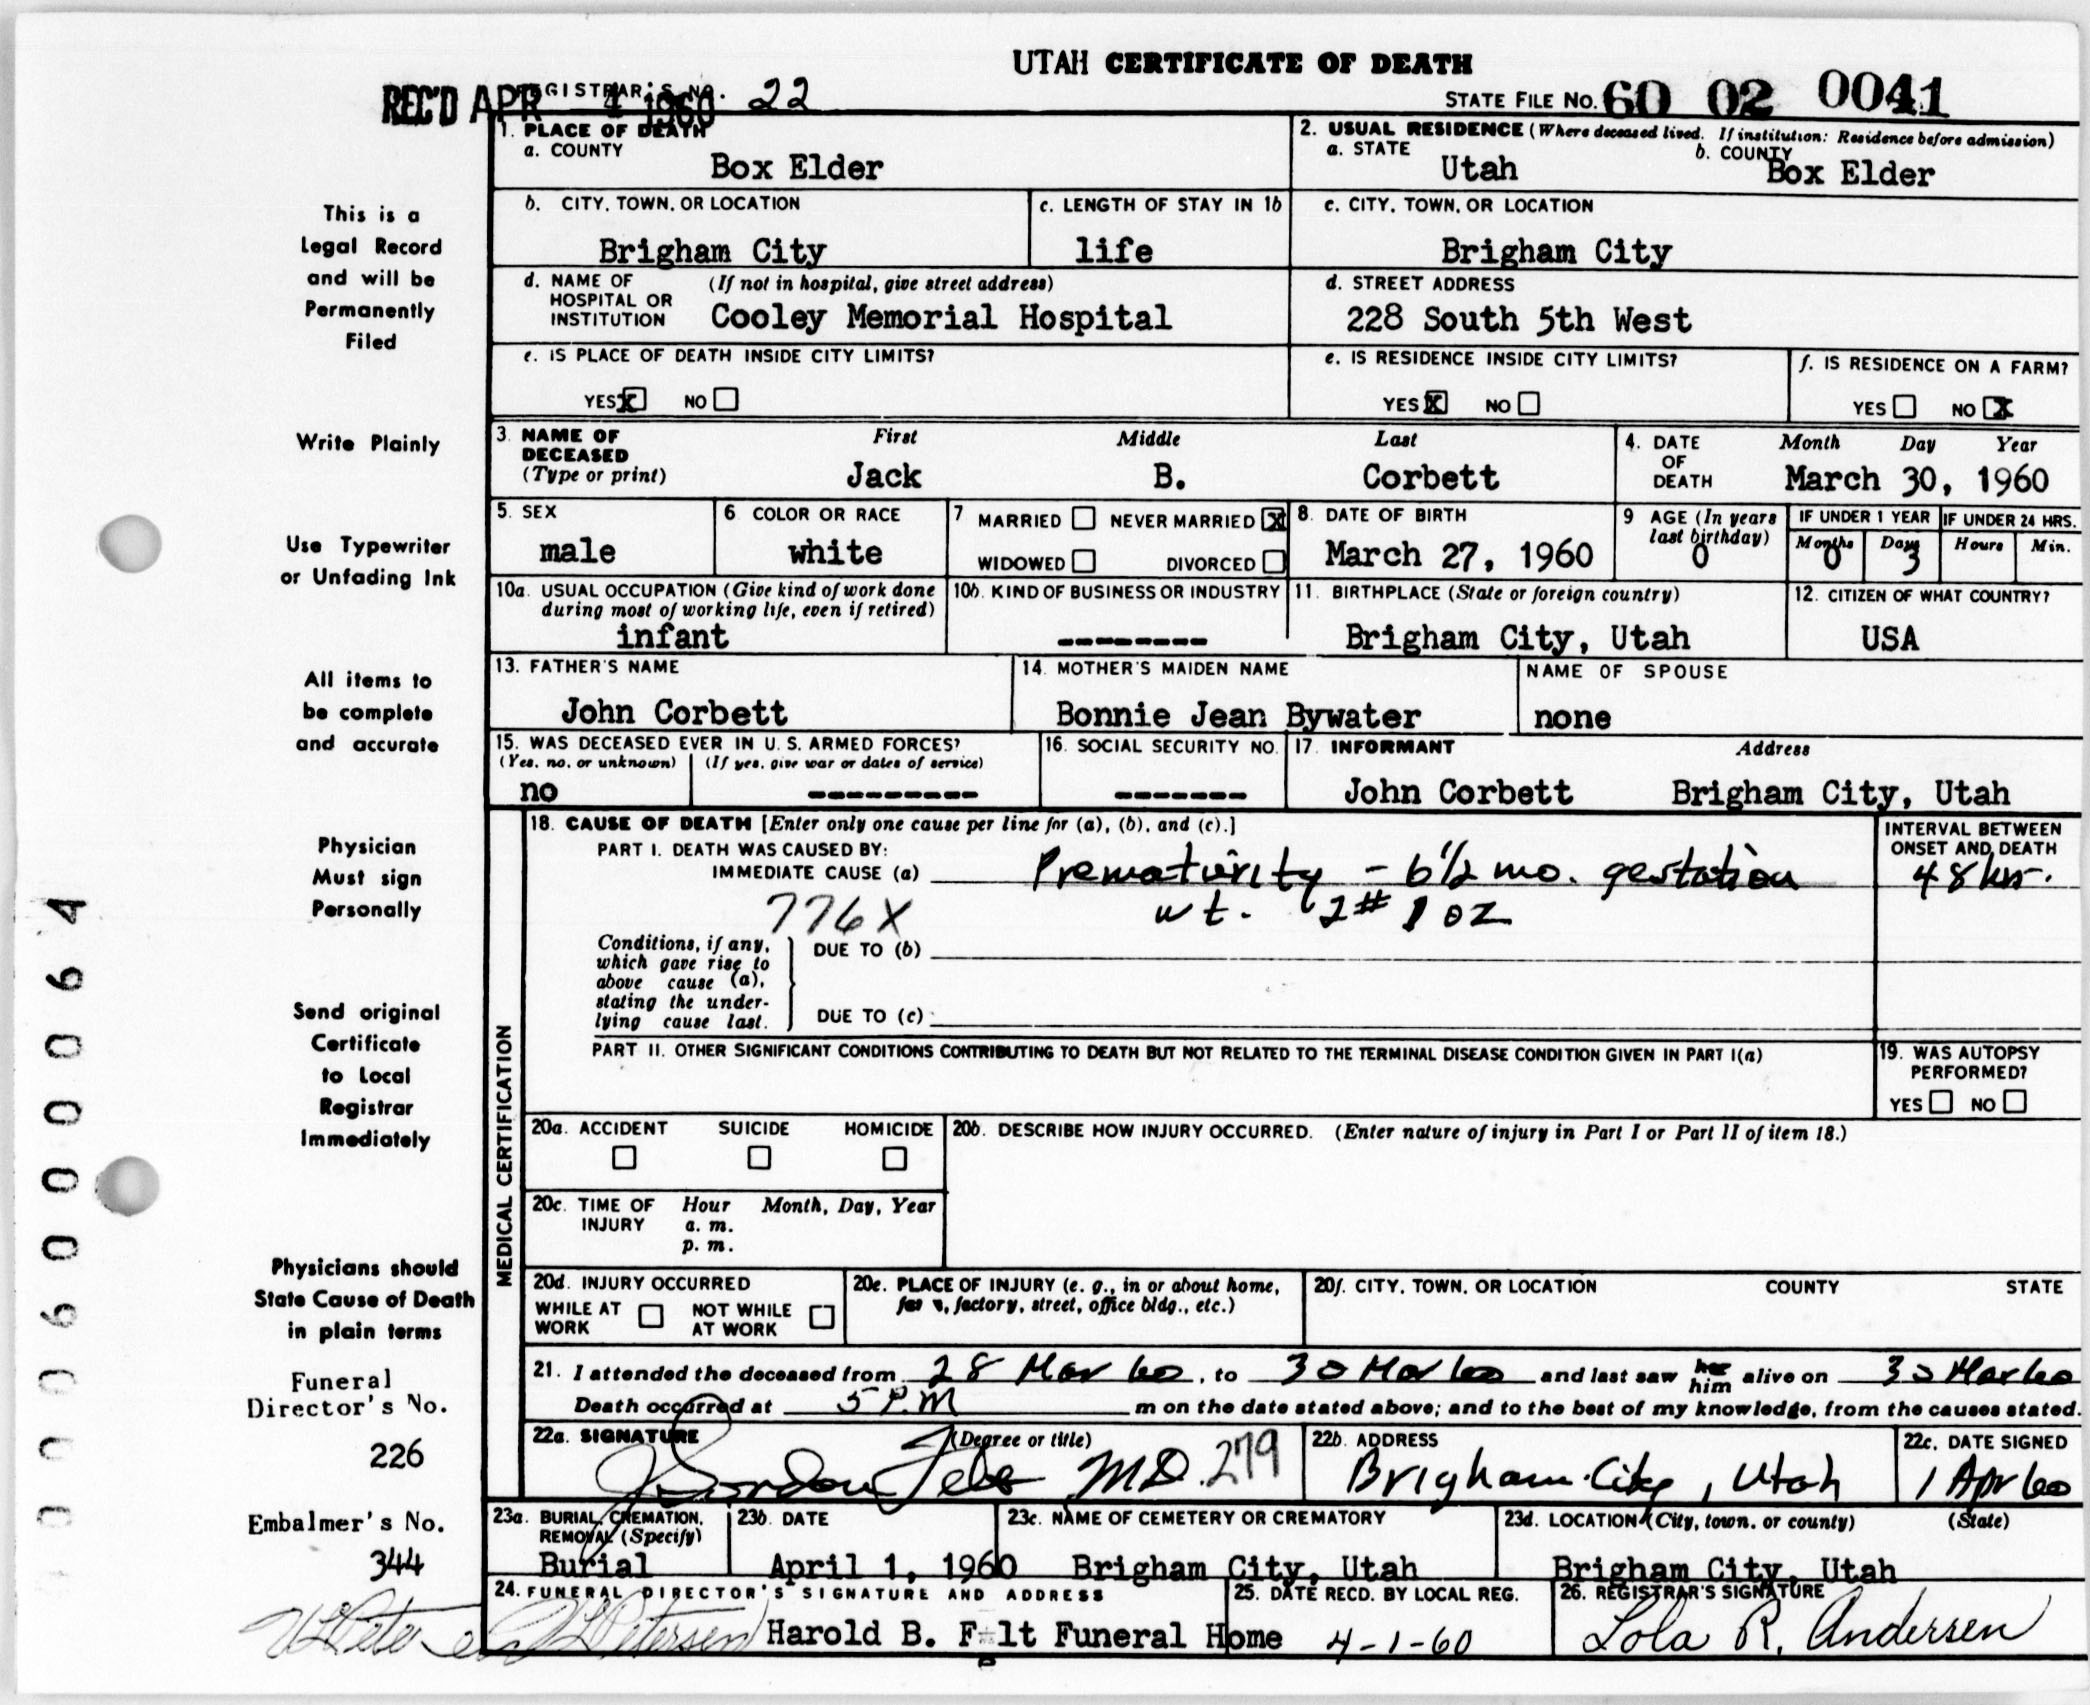 UTAH CERTIFICATE OF DEATH
REC'D APR 4 1960
REGISTRAR'S NO. 22
STATE FILE NO. 60 02 0041
1. PLACE OF DEATH
a. COUNTY
Box Elder
2. USUAL RESIDENCE (Where deceased lived. If institution: Residence before admission)
a. STATE Utah b. COUNTY Box Elder
b. CITY, TOWN, OR LOCATION
Brigham City
c. LENGTH OF STAY IN 1b
life
c. CITY, TOWN, OR LOCATION
Brigham City
d. NAME OF HOSPITAL OR INSTITUTION (If not in hospital, give street address)
Cooley Memorial Hospital
d. STREET ADDRESS
228 South 5th West
e. IS PLACE OF DEATH INSIDE CITY LIMITS?
YES X NO
e. IS RESIDENCE INSIDE CITY LIMITS?
YES X NO
f. IS RESIDENCE ON A FARM?
YES NO X
3. NAME OF DECEASED (Type or print)
First Middle Last
Jack B. Corbett
4. DATE OF DEATH Month Day Year
March 30, 1960
5. SEX
male
6 COLOR OR RACE
white
7 MARRIED NEVER MARRIED X
WIDOWED DIVORCED
8. DATE OF BIRTH
March 27, 1960
9 AGE (In years last birthday)
0
IF UNDER 1 YEAR
Months Days
0 3
IF UNDER 24 HRS.
Hours Min.
10a. USUAL OCCUPATION (Give kind of work done during most of working life, even if retired)
infant
10b. KIND OF BUSINESS OR INDUSTRY
--------
11. BIRTHPLACE (State or foreign country)
Brigham City, Utah
12. CITIZEN OF WHAT COUNTRY?
USA
13. FATHER'S NAME
John Corbett
14. MOTHER'S MAIDEN NAME
Bonnie Jean Bywater
NAME OF SPOUSE
none
15. WAS DECEASED EVER IN U. S. ARMED FORCES?
(Yes, no, or unknown) (If yes, give war or dates of service)
no ---------
16. SOCIAL SECURITY NO.
-------
17. INFORMANT Address
John Corbett Brigham City, Utah
MEDICAL CERTIFICATION
18. CAUSE OF DEATH [Enter only one cause per line for (a), (b), and (c).]
PART I. DEATH WAS CAUSED BY:
IMMEDIATE CAUSE (a) Prematurity - 6 1/2 mo. gestation
776X wt. 2# 1 oz
INTERVAL BETWEEN ONSET AND DEATH
48 hrs.
Conditions, if any, which gave rise to above cause (a), stating the underlying cause last.
DUE TO (b)
DUE TO (c)
PART II. OTHER SIGNIFICANT CONDITIONS CONTRIBUTING TO DEATH BUT NOT RELATED TO THE TERMINAL DISEASE CONDITION GIVEN IN PART I(a)
19. WAS AUTOPSY PERFORMED?
YES NO
20a. ACCIDENT SUICIDE HOMICIDE
20b. DESCRIBE HOW INJURY OCCURRED. (Enter nature of injury in Part I or Part II of item 18.)
20c. TIME OF INJURY Hour Month, Day, Year
a. m.
p. m.
20d. INJURY OCCURRED
WHILE AT WORK NOT WHILE AT WORK
20e. PLACE OF INJURY (e. g., in or about home, farm, factory, street, office bldg., etc.)
20f. CITY, TOWN, OR LOCATION COUNTY STATE
21. I attended the deceased from 28 Mar 60, to 30 Mar 60 and last saw her him alive on 30 Mar 60
Death occurred at 5 P.M m on the date stated above; and to the best of my knowledge, from the causes stated.
22a. SIGNATURE (Degree or title)
J Gordon Felt MD. 279
22b. ADDRESS
Brigham City, Utah
22c. DATE SIGNED
1 Apr 60
23a. BURIAL, CREMATION, REMOVAL (Specify)
Burial
23b. DATE
April 1, 1960
23c. NAME OF CEMETERY OR CREMATORY
Brigham City, Utah
23d. LOCATION (City, town, or county) (State)
Brigham City, Utah
24. FUNERAL DIRECTOR'S SIGNATURE AND ADDRESS
Petersen Harold B. Felt Funeral Home
25. DATE RECD. BY LOCAL REG.
4-1-60
26. REGISTRAR'S SIGNATURE
Lola R. Andersen
This is a
Legal Record
and will be
Permanently
Filed
Write Plainly
Use Typewriter
or Unfading Ink
All items to
be complete
and accurate
Physician
Must sign
Personally
Send original
Certificate
to Local
Registrar
Immediately
Physicians should
State Cause of Death
in plain terms
Funeral
Director's No.
226
Embalmer's No.
344
0000600064